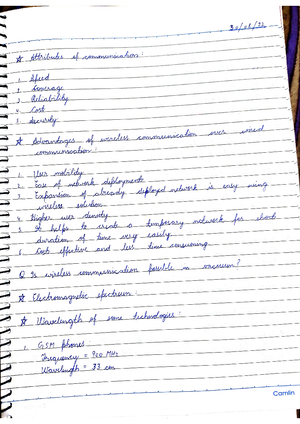 ☆ Attributes of communication :
1. Speed
2. Coverage
3. Reliability
4. Cost
5. Security
☆ Advantages of wireless communication over wired
communication :
1. User mobility
2. Ease of network deployment
3. Expansion of already deployed network is easy using
wireless solution
4. Higher user density
5. It helps to create a temporary network for short
duration of time very easily.
6. Cost effective and less time consuming.
Q. Is wireless communication possible in vacuum?
☆ Electromagnetic spectrum :
☆ Wavelength of some technologies :
1. GSM phones
Frequency = 900 MHz
Wavelength = 33 cm
Camlin